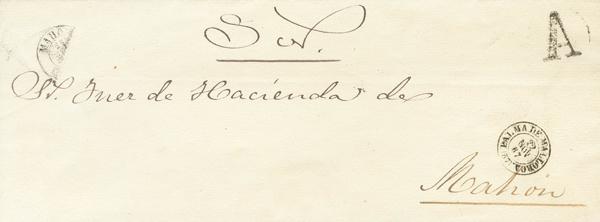 S. N.
MAHO
A
Sr. Juez de Hacienda de
PALMA DE MALLORCA
NOV
Mahon